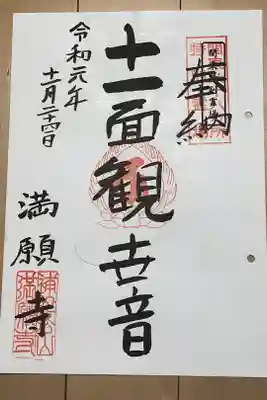 奉納
十一面観世音
令和元年
十一月二十四日
満願寺